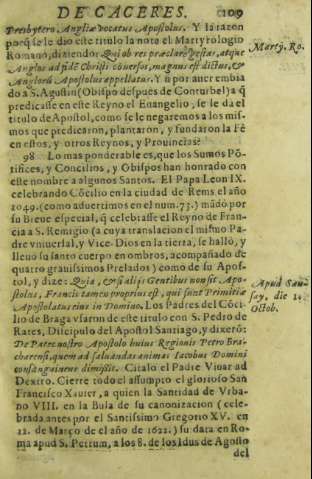 DE CACERES. 109
Presbytero, Angliæ vocatus Apostolus. Y la razon
porq̃ se le dio este titulo la nota el Martyrologio
Romano, diziendo: Qui ob res præclarè gestas, atque
Anglos ad fidē Christi cōuersos, magnus est dictus, &
Anglorū Apostolus appellatus. Y si por auer embia
do a S. Agustin (Obispo despues de Conturbel) a q̃
predicasse en este Reyno el Euangelio, se le da el
titulo de Apostol, como se le negaremos a los mis
mos que predicaron, plantaron, y fundaron la Fè
en estos, y otros Reynos, y Prouincias?
98 Lo mas ponderable es, que los Sumos Pō-
tifices, y Concilios, y Obispos han honrado con
este nombre a algunos Santos. El Papa Leon IX.
celebrando Cōcilio en la ciudad de Rems el año
1049. (como aduertimos en el num. 73.) mādò por
su Breue especial, q̃ celebrasse el Reyno de Fran-
cia a S. Remigio (a cuya translacion el mismo Pa-
dre vniuersal, y Vice-Dios en la tierra, se hallò, y
lleuò su santo cuerpo en ombros, acompañado de
quatro grauissimos Prelados) como de su Apos-
tol, y dize: Quia, & si alijs Gentibus non sit Apo-
stolus, Francis tamen proprius est, qui sunt Primitiæ
Apostolatus eius in Domino. Los Padres del Cōci-
lio de Braga vsaron de este titulo con S. Pedro de
Rates, Discipulo del Apostol Santiago, y dixerō:
De Patre nostro Apostolo huius Regionis Petro Bra-
charensi, quem ad saluandas animas Iacobus Domini
consanguineus dimissit. Citalo el Padre Viuar ad
Dextro. Cierre todo el assumpto el glorioso San
Francisco Xauier, a quien la Santidad de Vrba-
no VIII. en la Bula de su canonizacion (cele-
brada antes por el Santissimo Gregorio XV. en
12. de Março de el año de 1622.) su data en Ro-
ma apud S. Petrum, a los 8. de los Idus de Agosto
del
Martyr. Ro.
Apud
say, die
Octob.